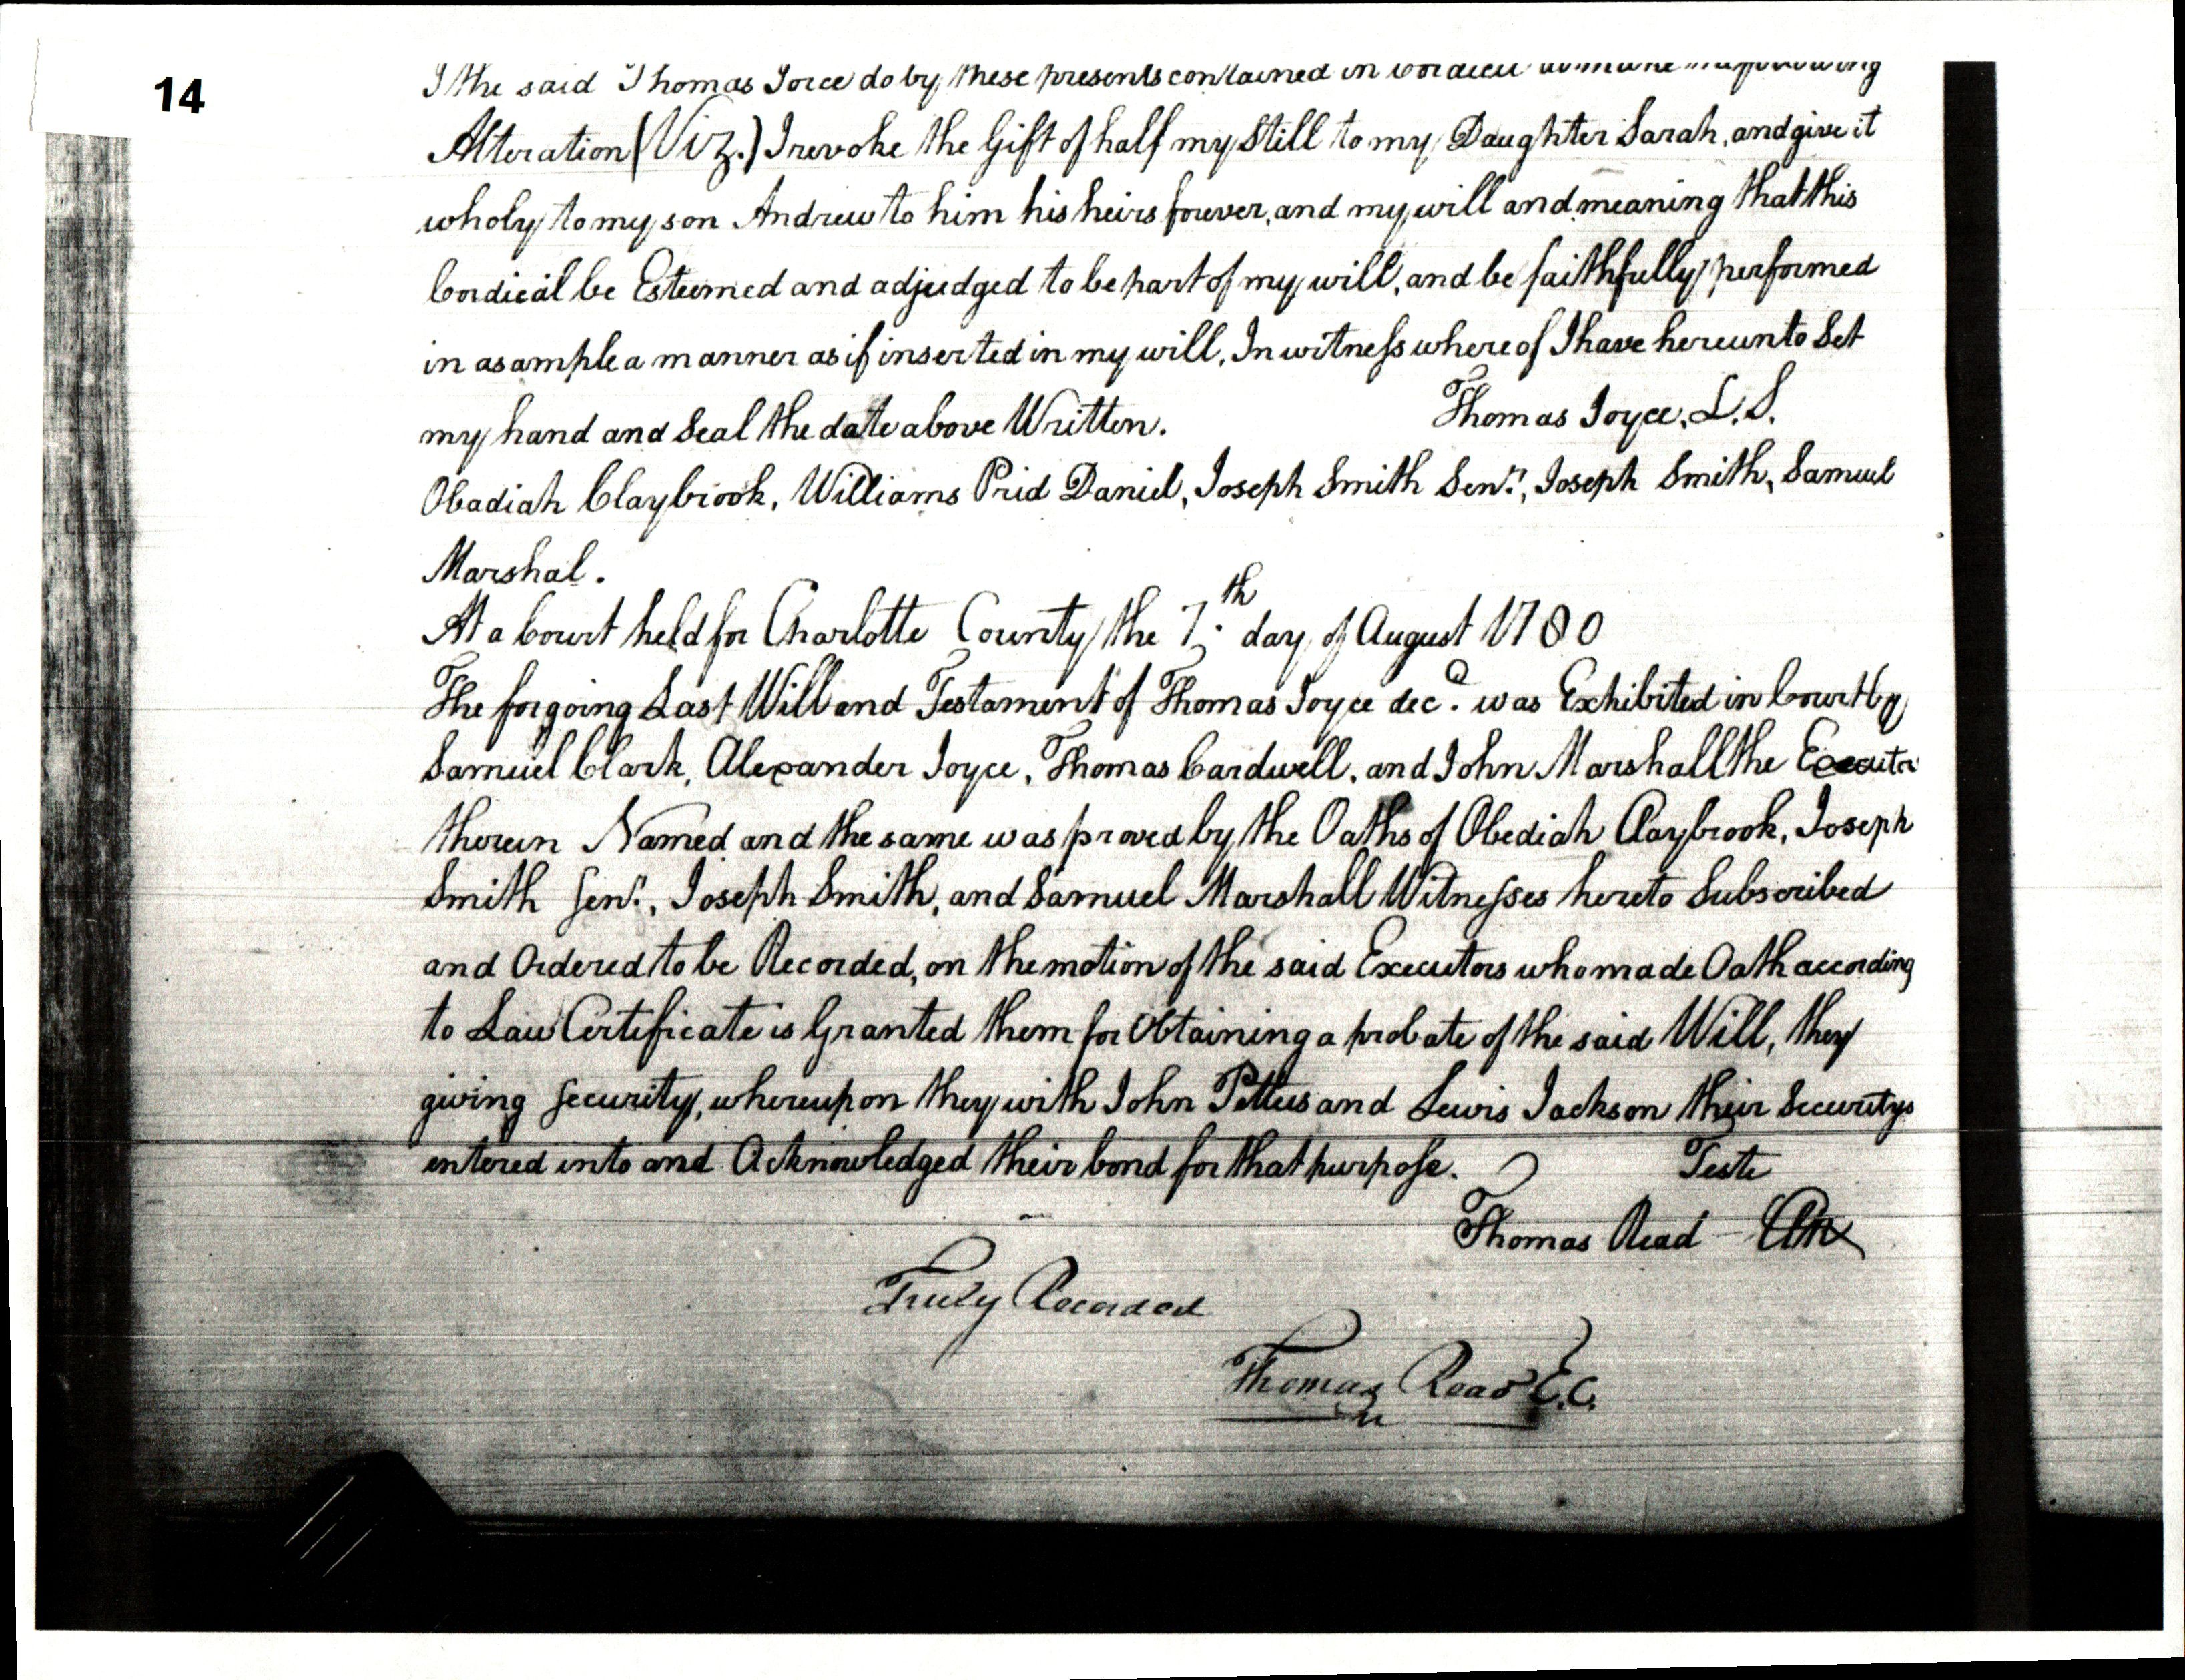 14
I the said Thomas Joice do by these presents contained in
Alteration (Viz.) I revoke the Gift of half my Still to my Daughter Sarah, and give it
wholy to my son Andrew to him his heirs forever, and my will and meaning that this
Cordicil be Esteemed and adjudged to be part of my will, and be faithfully performed
in as ample a manner as if inserted in my will, In witness where of I have hereunto Set
my hand and Seal the date above Written. Thomas Joyce, L.S.
Obadiah Claybrook, Williams Prid Daniel, Joseph Smith Senr., Joseph Smith, Samuel
Marshal.
At a Court held for Charlotte County the 7th. day of August 1780
The forgoing Last Will and Testament of Thomas Joyce decd. was Exhibited in Court by
Samuel Clark, Alexander Joyce, Thomas Cardwell, and John Marshall the Executor
therein Named and the same was proved by the Oaths of Obediah Claybrook, Joseph
Smith Senr., Joseph Smith, and Samuel Marshall Witnesses hereto Subscribed
and Ordered to be Recorded, on the motion of the said Executors who made Oath according
to Law Certificate is Granted them for Obtaining a probate of the said Will, they
giving Security, whereupon they with John Pettus and Lewis Jackson their Securitys
entered into and Acknowledged their bond for that purpose. Teste
Thomas Read Clk
Truly Recorded
Thomas Read C.C.